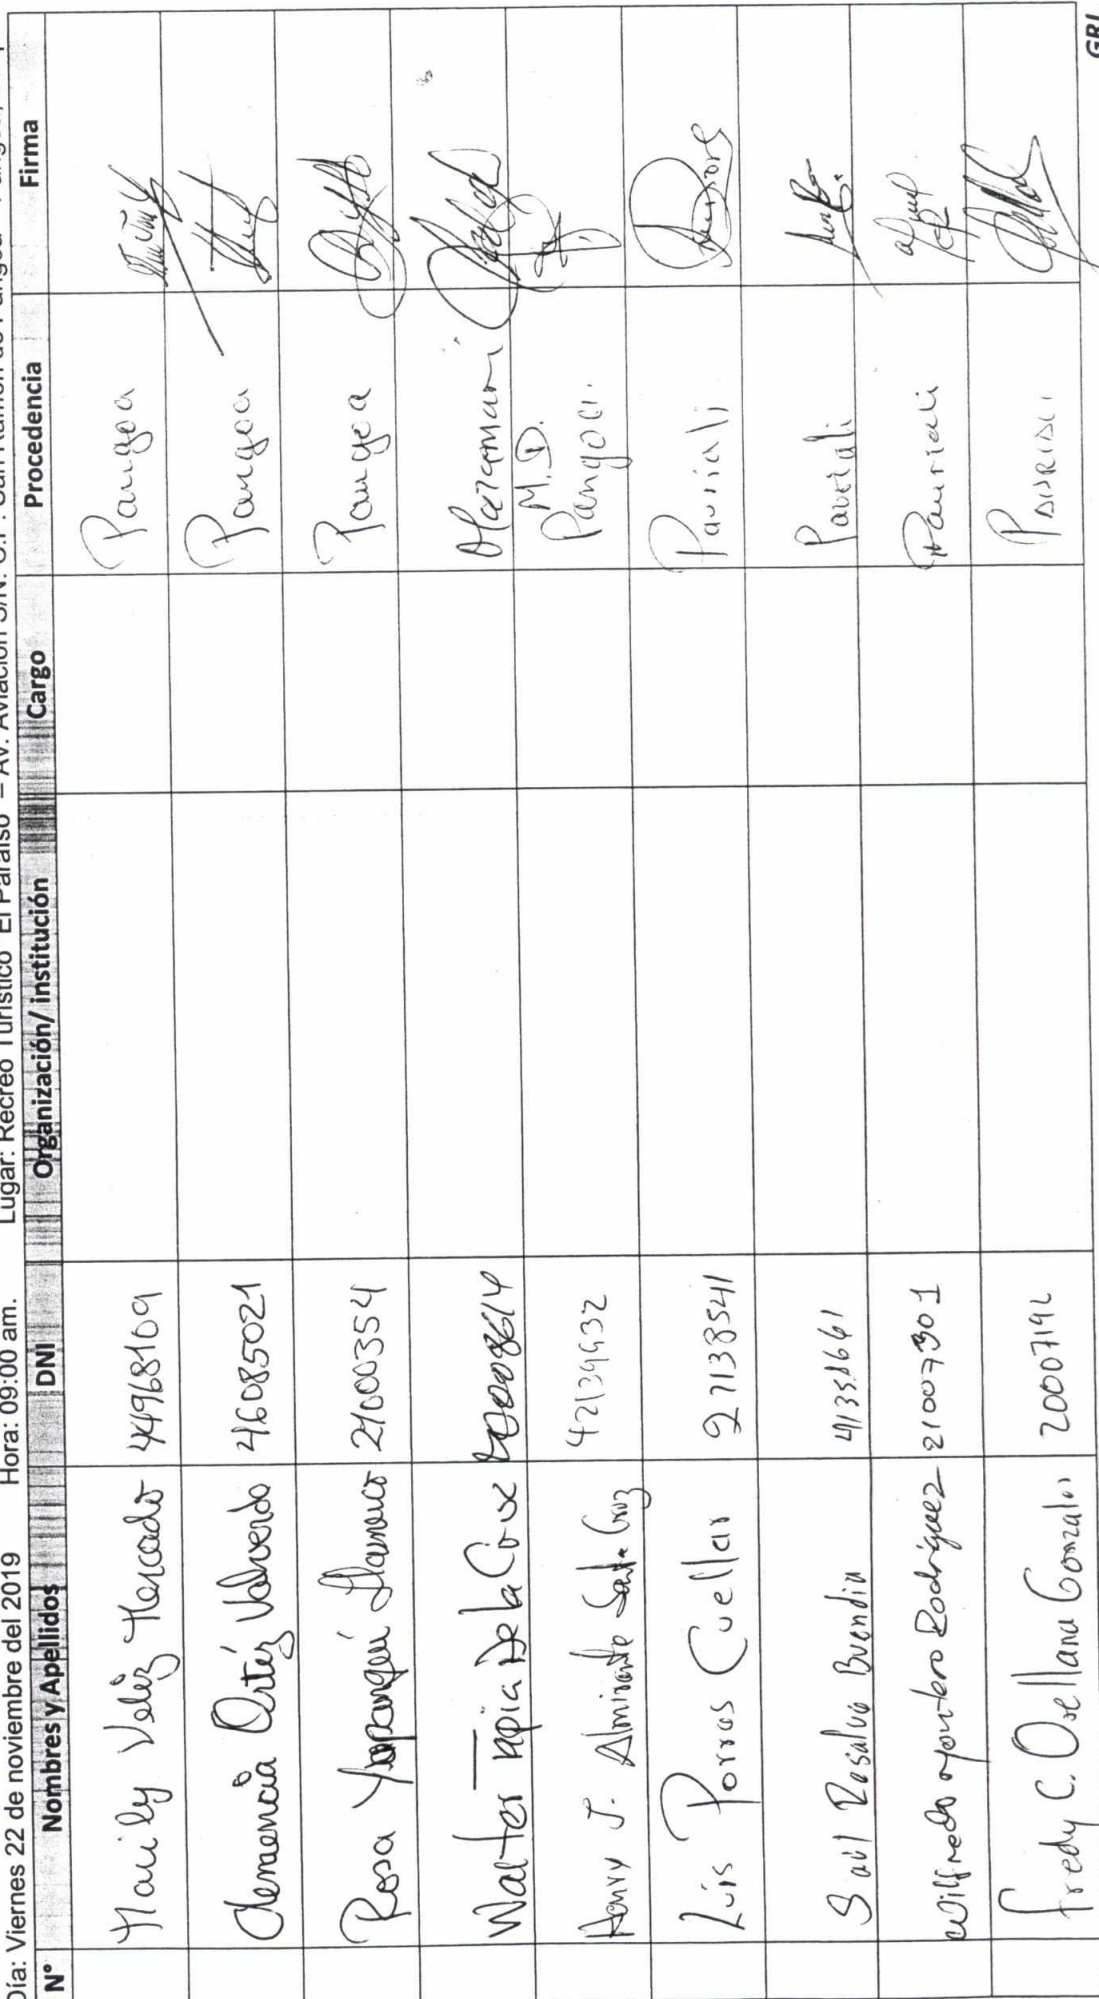 Día: Viernes 22 de noviembre del 2019 Hora: 09:00 am. Lugar: Recreo Turístico "El Paraíso" – Av. Aviación S/N. C.P. San Ramón de Pangoa
N° Nombres y Apellidos DNI Organización/ institución Cargo Procedencia Firma
Marily Veliz Mercado 44968109 Pangoa
Clemencia Ortiz Valverde 46085021 Pangoa
Rosa Yupanqui 21000354 Pangoa
Walter Tapia De la Cruz Mazamari
Henry J. Almirante Santa Cruz M.D. Pangoa
Luis Porras Cuellar Pauriali
Saul Rosalvo Buendia Pauriali
Wilfredo Montero Rodriguez 21007301 Pauriali
Fredy C. Orellana Gonzalos Pauriali
GRJ